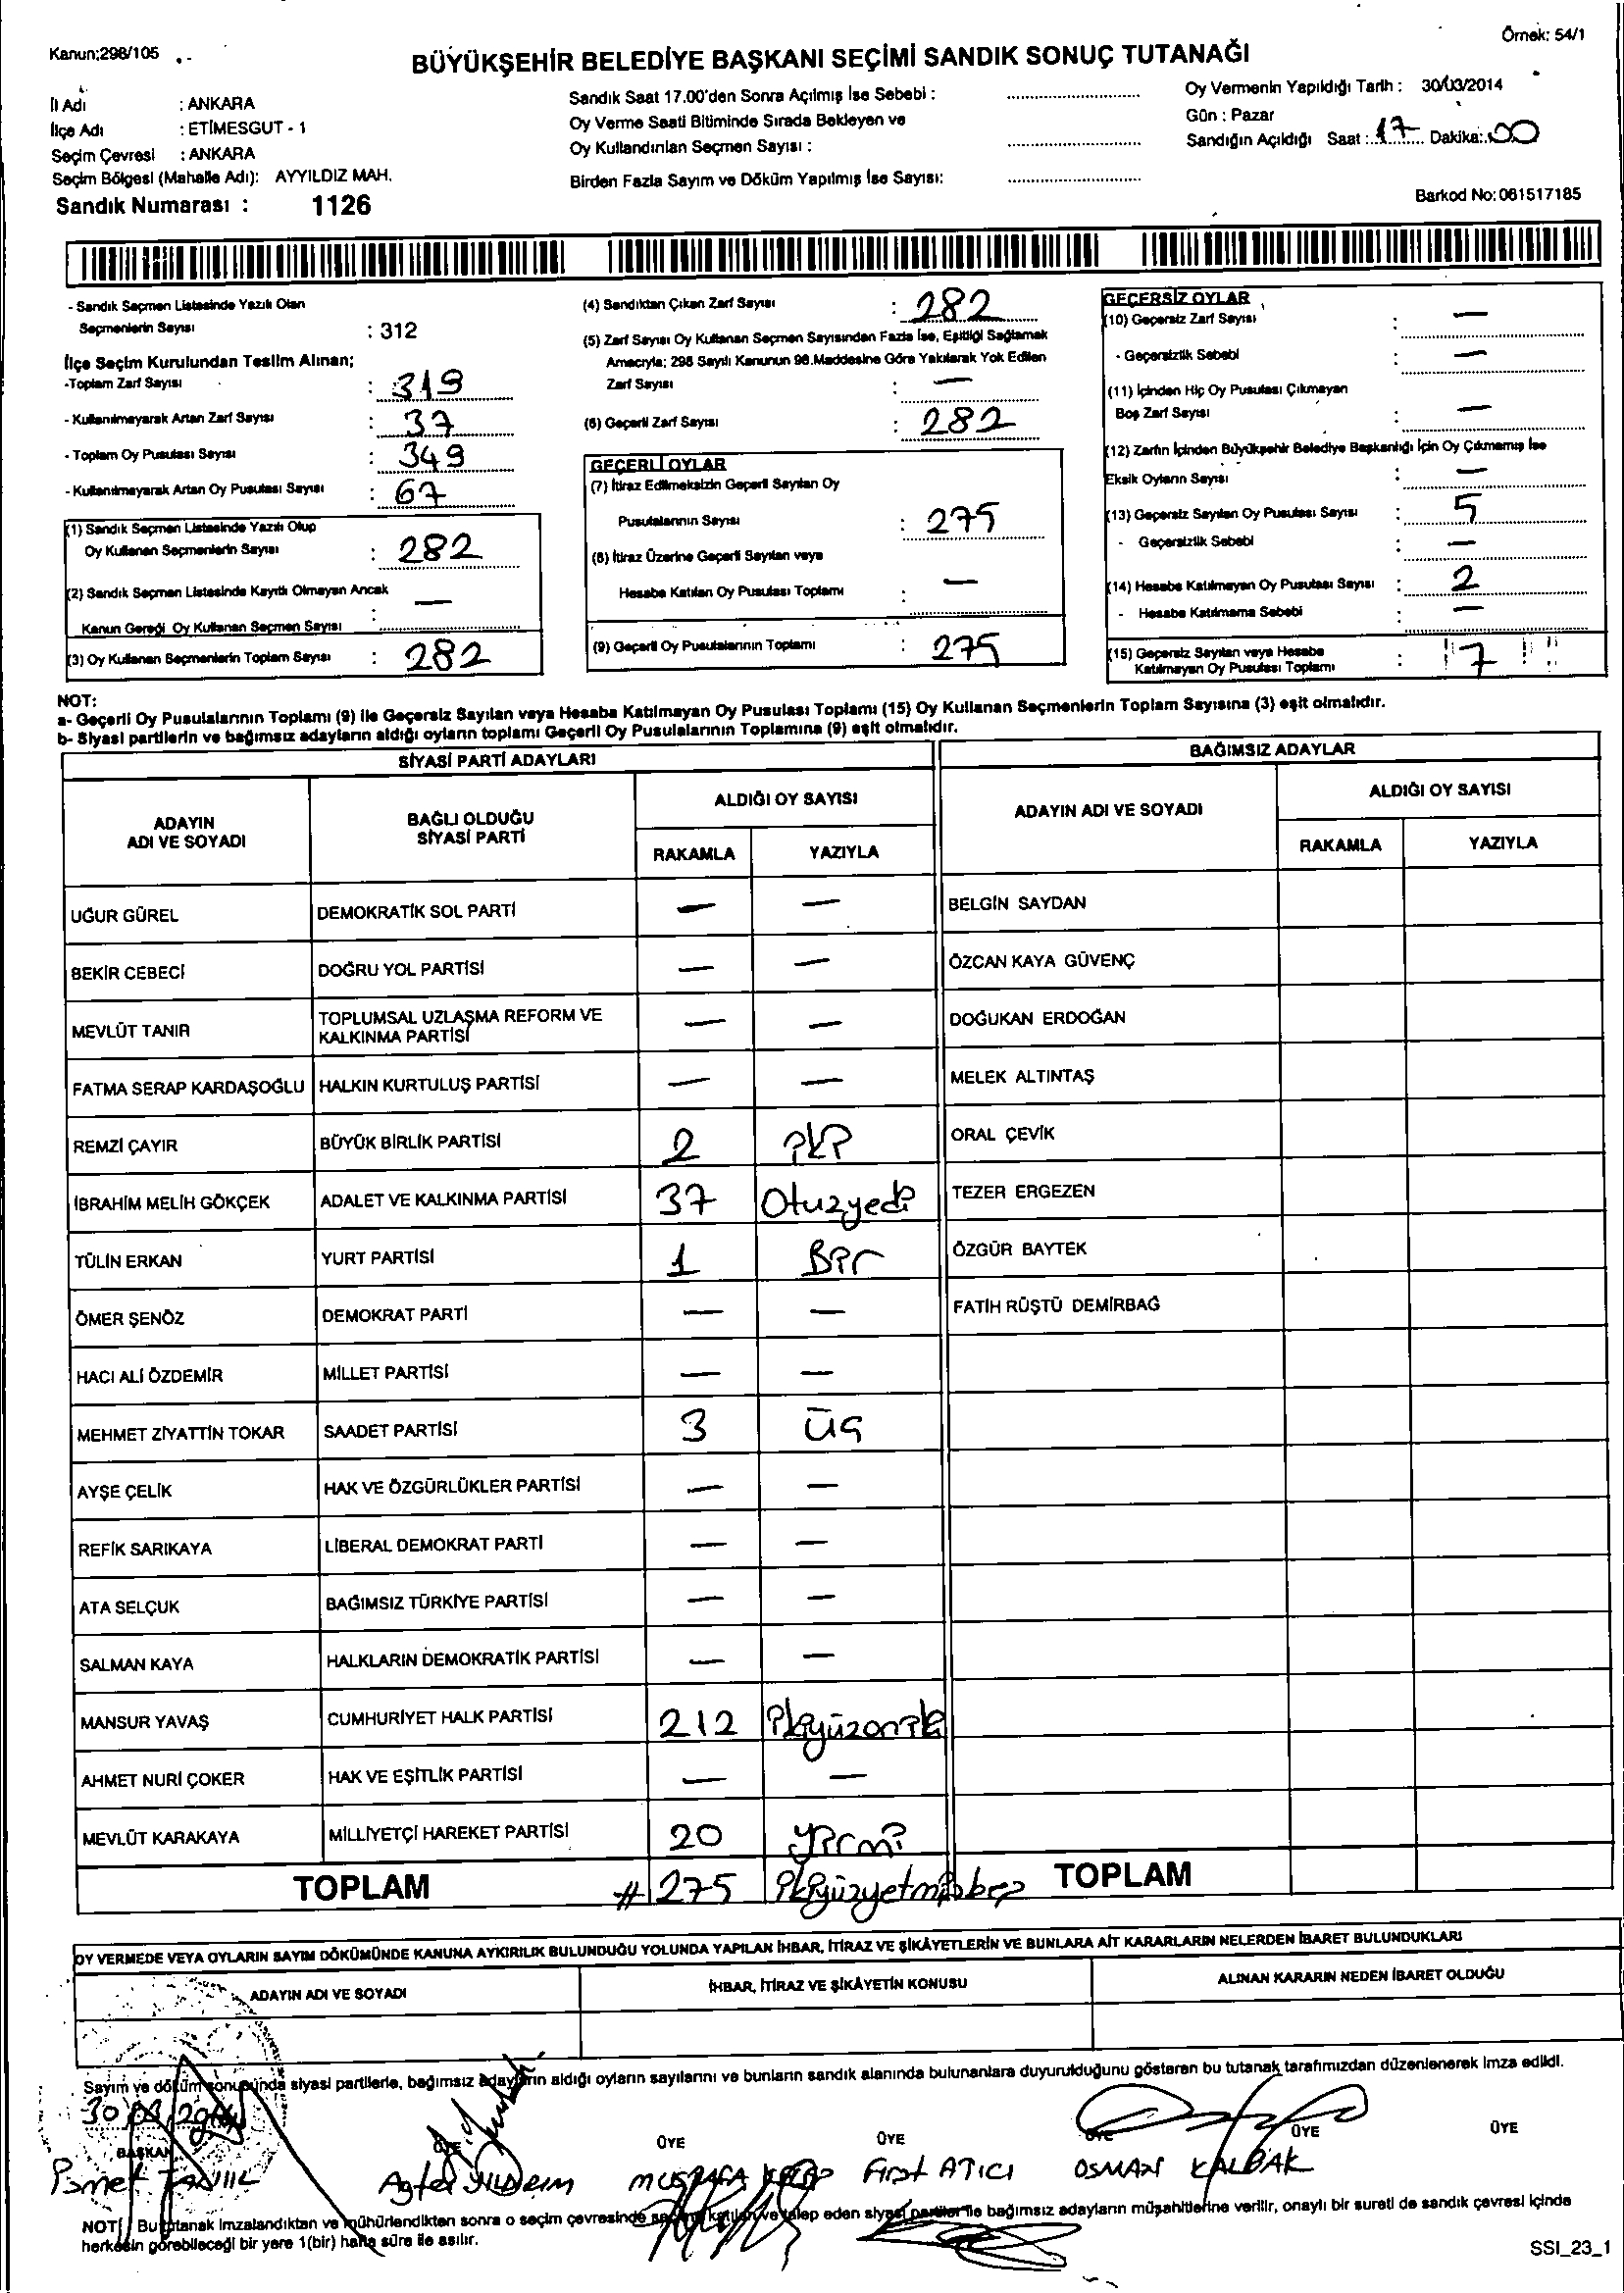 Kanun:298/105
Örnek: 54/1
BÜYÜKŞEHİR BELEDİYE BAŞKANI SEÇİMİ SANDIK SONUÇ TUTANAĞI
İl Adı : ANKARA
İlçe Adı : ETİMESGUT - 1
Seçim Çevresi : ANKARA
Seçim Bölgesi (Mahalle Adı): AYYILDIZ MAH.
Sandık Numarası : 1126
Sandık Saat 17.00'den Sonra Açılmış İse Sebebi :
Oy Verme Saati Bitiminde Sırada Bekleyen ve
Oy Kullandırılan Seçmen Sayısı :
Birden Fazla Sayım ve Döküm Yapılmış İse Sayısı:
Oy Vermenin Yapıldığı Tarih : 30/03/2014
Gün : Pazar
Sandığın Açıldığı Saat : 17 Dakika: 00
Barkod No: 061517185
- Sandık Seçmen Listesinde Yazılı Olan
Seçmenlerin Sayısı : 312
İlçe Seçim Kurulundan Teslim Alınan;
-Toplam Zarf Sayısı : 319
- Kullanılmayarak Artan Zarf Sayısı : 37
- Toplam Oy Pusulası Sayısı : 349
- Kullanılmayarak Artan Oy Pusulası Sayısı : 67
(1) Sandık Seçmen Listesinde Yazılı Olup
Oy Kullanan Seçmenlerin Sayısı : 282
(2) Sandık Seçmen Listesinde Kayıtlı Olmayan Ancak
Kanun Gereği Oy Kullanan Seçmen Sayısı : —
(3) Oy Kullanan Seçmenlerin Toplam Sayısı : 282
(4) Sandıktan Çıkan Zarf Sayısı : 282
(5) Zarf Sayısı Oy Kullanan Seçmen Sayısından Fazla İse, Eşitliği Sağlamak
Amacıyla; 298 Sayılı Kanunun 98.Maddesine Göre Yakılarak Yok Edilen
Zarf Sayısı : —
(6) Geçerli Zarf Sayısı : 282
GEÇERLİ OYLAR
(7) İtiraz Edilmeksizin Geçerli Sayılan Oy
Pusulalarının Sayısı : 275
(8) İtiraz Üzerine Geçerli Sayılan veya
Hesaba Katılan Oy Pusulası Toplamı : —
(9) Geçerli Oy Pusulalarının Toplamı : 275
GEÇERSİZ OYLAR
(10) Geçersiz Zarf Sayısı : —
- Geçersizlik Sebebi : —
(11) İçinden Hiç Oy Pusulası Çıkmayan
Boş Zarf Sayısı : —
(12) Zarfın İçinden Büyükşehir Belediye Başkanlığı İçin Oy Çıkmamış İse
Eksik Oyların Sayısı : —
(13) Geçersiz Sayılan Oy Pusulası Sayısı : 5
- Geçersizlik Sebebi : —
(14) Hesaba Katılmayan Oy Pusulası Sayısı : 2
- Hesaba Katılmama Sebebi : —
(15) Geçersiz Sayılan veya Hesaba
Katılmayan Oy Pusulası Toplamı : 7
NOT:
a- Geçerli Oy Pusulalarının Toplamı (9) ile Geçersiz Sayılan veya Hesaba Katılmayan Oy Pusulası Toplamı (15) Oy Kullanan Seçmenlerin Toplam Sayısına (3) eşit olmalıdır.
b- Siyasi partilerin ve bağımsız adayların aldığı oyların toplamı Geçerli Oy Pusulalarının Toplamına (9) eşit olmalıdır.
SİYASİ PARTİ ADAYLARI
ADAYIN ADI VE SOYADI
BAĞLI OLDUĞU SİYASİ PARTİ
ALDIĞI OY SAYISI
RAKAMLA YAZIYLA
UĞUR GÜREL DEMOKRATİK SOL PARTİ — —
BEKİR CEBECİ DOĞRU YOL PARTİSİ — —
MEVLÜT TANIR TOPLUMSAL UZLAŞMA REFORM VE KALKINMA PARTİSİ — —
FATMA SERAP KARDAŞOĞLU HALKIN KURTULUŞ PARTİSİ — —
REMZİ ÇAYIR BÜYÜK BİRLİK PARTİSİ 2 İki
İBRAHİM MELİH GÖKÇEK ADALET VE KALKINMA PARTİSİ 37 Otuzyedi
TÜLİN ERKAN YURT PARTİSİ 1 Bir
ÖMER ŞENÖZ DEMOKRAT PARTİ — —
HACI ALİ ÖZDEMİR MİLLET PARTİSİ — —
MEHMET ZİYATTİN TOKAR SAADET PARTİSİ 3 Üç
AYŞE ÇELİK HAK VE ÖZGÜRLÜKLER PARTİSİ — —
REFİK SARIKAYA LİBERAL DEMOKRAT PARTİ — —
ATA SELÇUK BAĞIMSIZ TÜRKİYE PARTİSİ — —
SALMAN KAYA HALKLARIN DEMOKRATİK PARTİSİ — —
MANSUR YAVAŞ CUMHURİYET HALK PARTİSİ 212 İkiyüzoniki
AHMET NURİ ÇOKER HAK VE EŞİTLİK PARTİSİ — —
MEVLÜT KARAKAYA MİLLİYETÇİ HAREKET PARTİSİ 20 Yirmi
TOPLAM # 275 İkiyüzyetmişbeş
BAĞIMSIZ ADAYLAR
ADAYIN ADI VE SOYADI
ALDIĞI OY SAYISI
RAKAMLA YAZIYLA
BELGİN SAYDAN
ÖZCAN KAYA GÜVENÇ
DOĞUKAN ERDOĞAN
MELEK ALTINTAŞ
ORAL ÇEVİK
TEZER ERGEZEN
ÖZGÜR BAYTEK
FATİH RÜŞTÜ DEMİRBAĞ
TOPLAM
OY VERMEDE VEYA OYLARIN SAYIM DÖKÜMÜNDE KANUNA AYKIRILIK BULUNDUĞU YOLUNDA YAPILAN İHBAR, İTİRAZ VE ŞİKÂYETLERİN VE BUNLARA AİT KARARLARIN NELERDEN İBARET BULUNDUKLARI
ADAYIN ADI VE SOYADI
İHBAR, İTİRAZ VE ŞİKÂYETİN KONUSU
ALINAN KARARIN NEDEN İBARET OLDUĞU
Sayım ve döküm sonucunda siyasi partilerle, bağımsız adayların aldığı oyların sayılarını ve bunların sandık alanında bulunanlara duyurulduğunu gösteren bu tutanak tarafımızdan düzenlenerek imza edildi.
30/03/2014
BAŞKAN ÜYE ÜYE ÜYE ÜYE ÜYE ÜYE
İsmet YILDIRIM MUSTAFA Fırat ATICI OSMAN KALPAK
NOT: Bu tutanak imzalandıktan ve mühürlendikten sonra o seçim çevresinde seçime katılan ve talep eden siyasi partiler ile bağımsız adayların müşahitlerine verilir, onaylı bir sureti de sandık çevresi içinde
herkesin görebileceği bir yere 1(bir) hafta süre ile asılır.
SSI_23_1